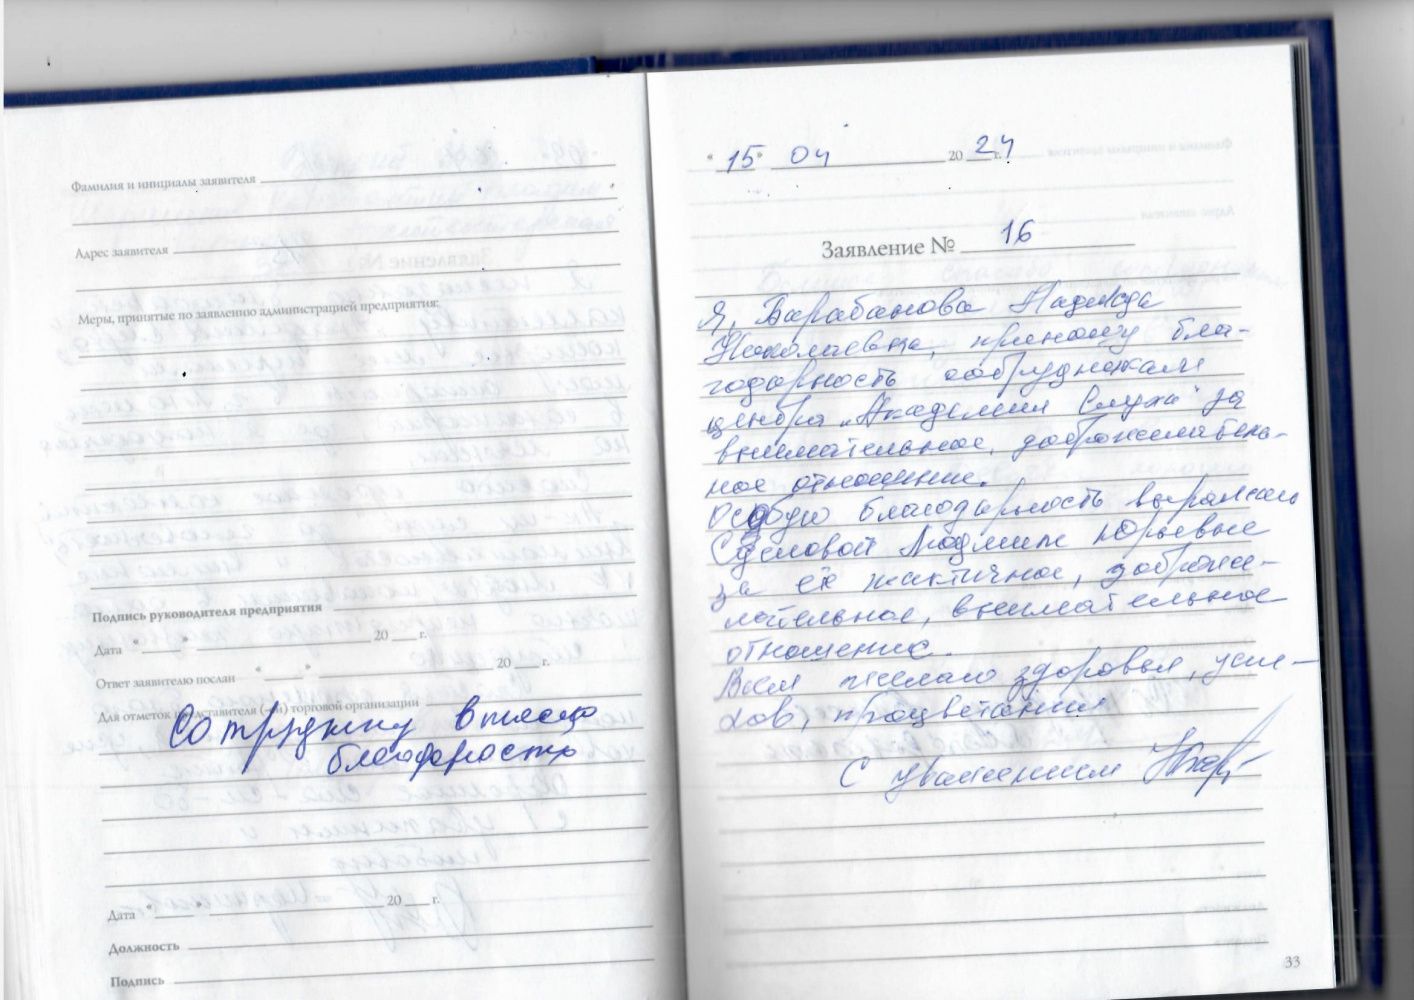 Фамилия и инициалы заявителя
Адрес заявителя
Меры, принятые по заявлению администрацией предприятия:
Подпись руководителя предприятия
Дата «___» 20 г.
Ответ заявителю послан «___» 20 г.
Для отметок представителя (-ей) торговой организации
Сотруднику
благодарность
Дата «___» 20 г.
Должность
Подпись
«15» 04 2024 г.
Заявление № 16
Я, Барабанова Надежда
Николаевна, приношу бла-
годарность сотрудникам
центра „Академия Слуха" за
внимательное, доброжелатель-
ное отношение.
Особую благодарность выражаю
Людмиле Юрьевне
за её тактичное, доброже-
лательное, внимательное
отношение.
Всем желаю здоровья, успе-
хов, процветания
С уважением
33